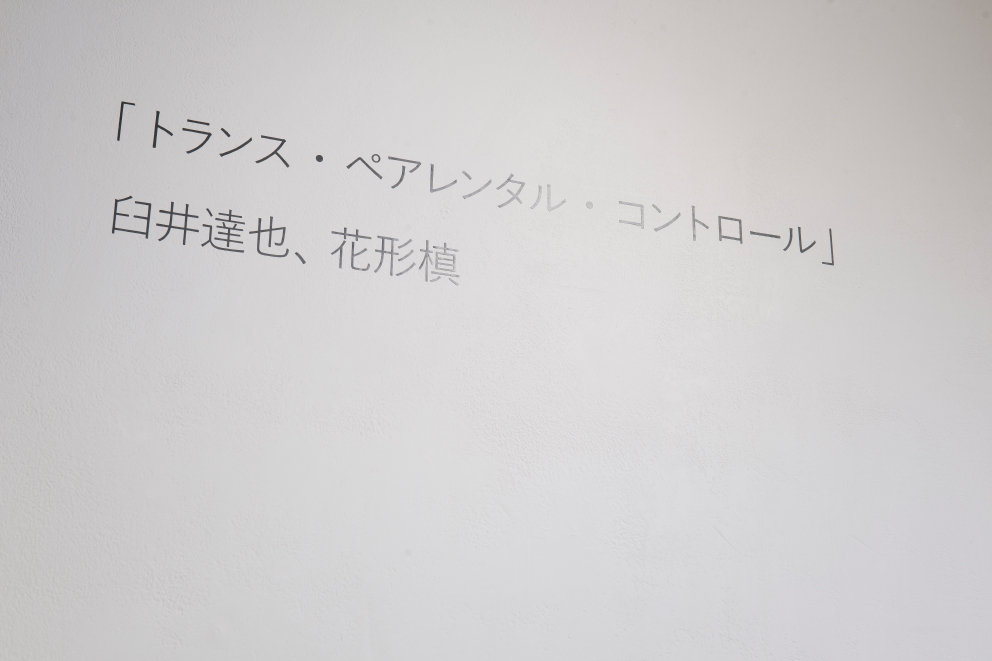 「トランス・ペアレンタル・コントロール」
臼井達也、花形槙